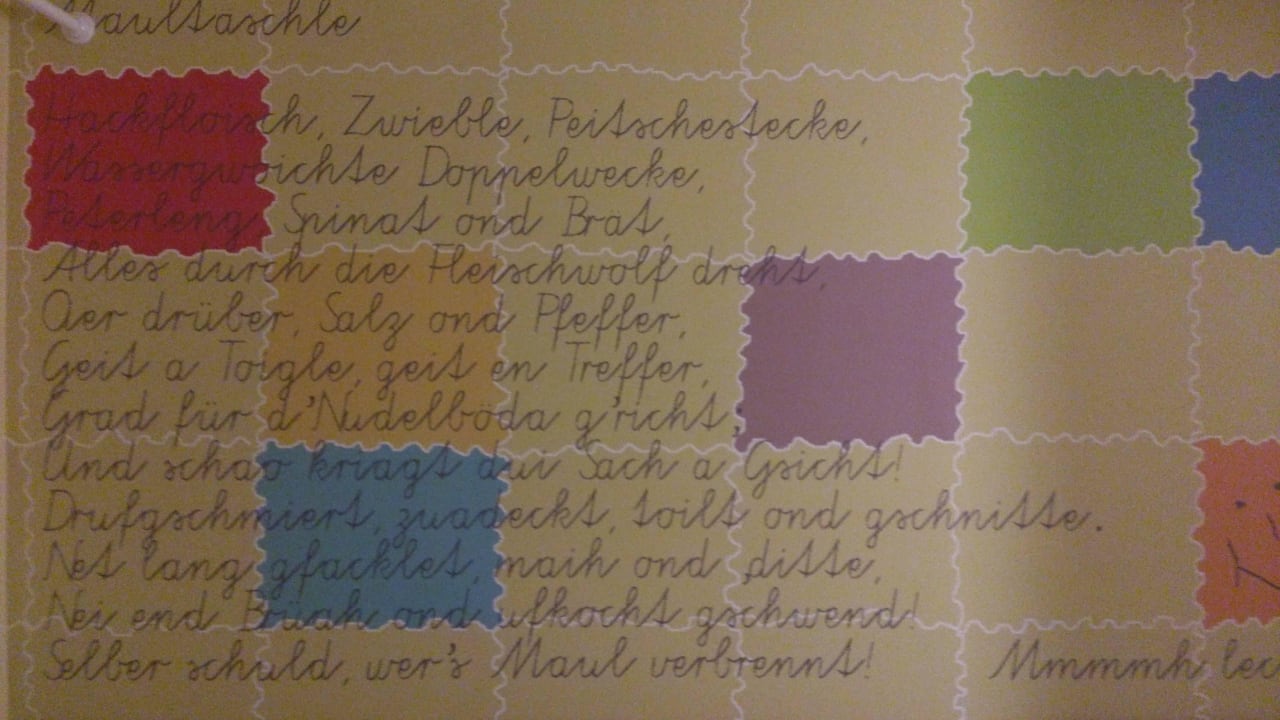 Maultaschle
Hackfloisch, Zwieble, Peitschestecke,
Wassergwoichte Doppelwecke,
Peterleng, Spinat ond Brät,
Alles durch die Fleischwolf dreht,
Oier drüber, Salz ond Pfeffer,
Geit a Toigle, geit en Treffer,
Grad für d'Nudelböda g'richt,
Und schao kriagt dui Sach a Gsicht!
Drufgschmiert, zuadeckt, toilt ond gschnitte.
Net lang gfacklet, maih ond ditte,
Nei end Brüah ond ufkocht gschwend!
Selber schuld, wer's Maul verbrennt! Mmmmh lec